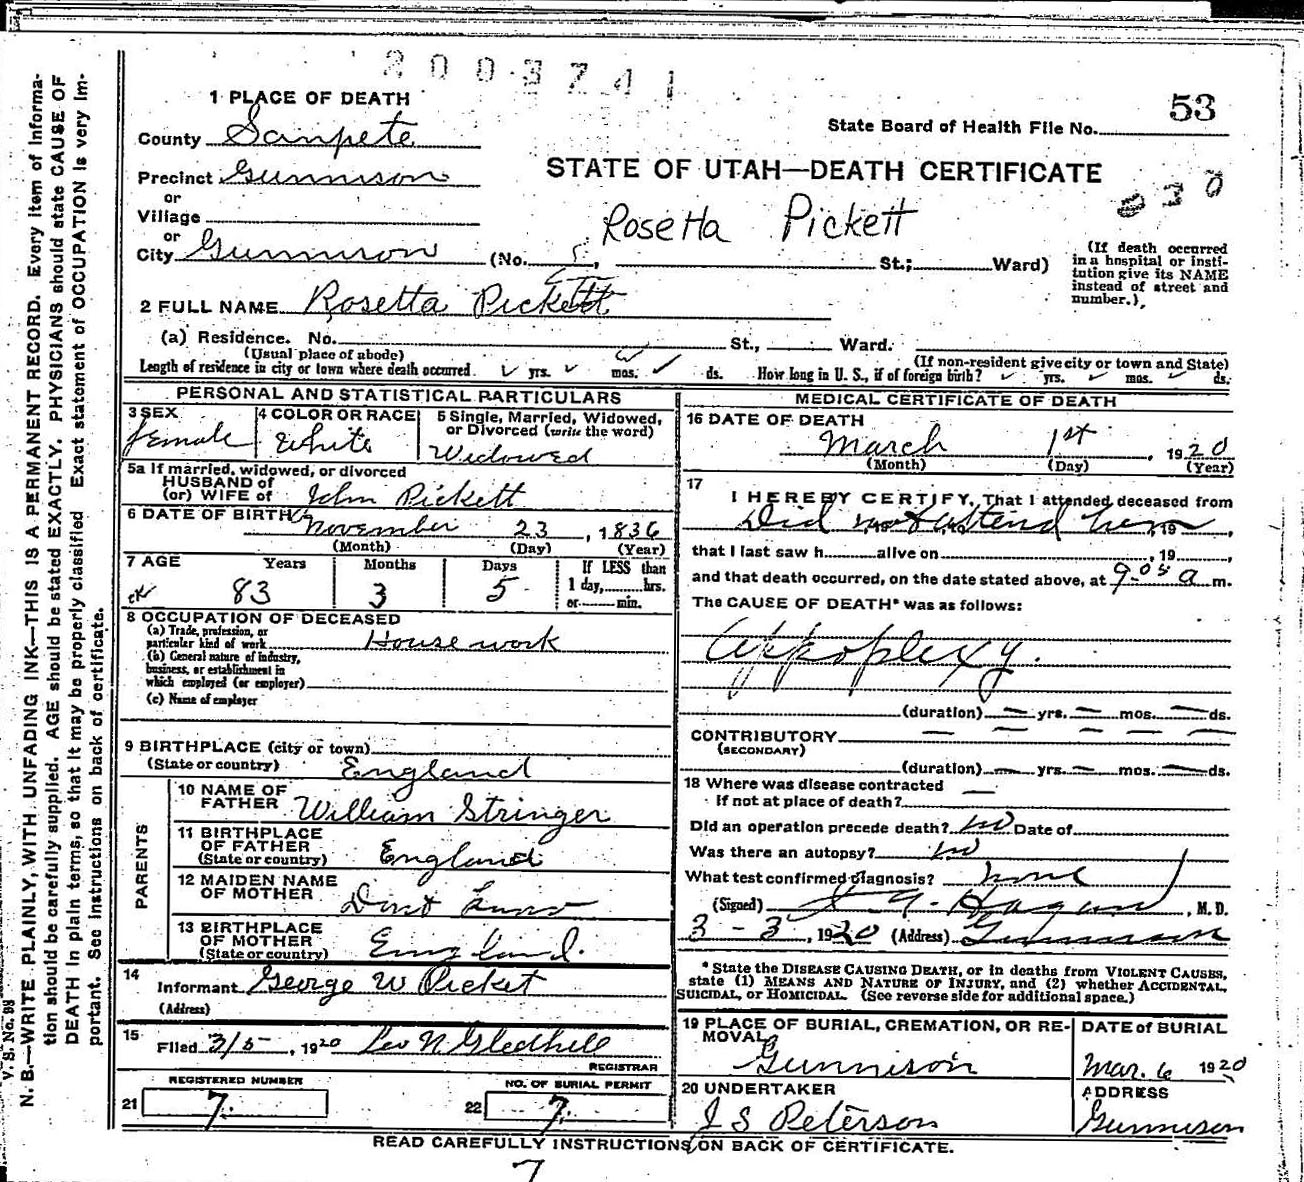 2003741
1 PLACE OF DEATH
53
State Board of Health File No.
County Sanpete
STATE OF UTAH—DEATH CERTIFICATE
Precinct Gunnison
or
Village
Rosetta Pickett
or
City Gunnison (No. , St.; Ward)
(If death occurred in a hospital or insti-
tution give its NAME
instead of street and
number.)
2 FULL NAME Rosetta Pickett
(a) Residence. No. St., Ward.
(Usual place of abode)
(If non-resident give city or town and State)
Length of residence in city or town where death occurred yrs. mos. ds. How long in U. S., if of foreign birth? yrs. mos. ds.
PERSONAL AND STATISTICAL PARTICULARS
3 SEX
female
4 COLOR OR RACE
White
5 Single, Married, Widowed,
or Divorced (write the word)
Widowed
5a If married, widowed, or divorced
HUSBAND of
(or) WIFE of John Pickett
6 DATE OF BIRTH November 23, 1836
(Month) (Day) (Year)
7 AGE Years Months Days If LESS than
1 day, hrs.
or min.
83 3 5
8 OCCUPATION OF DECEASED
(a) Trade, profession, or
particular kind of work House work
(b) General nature of industry,
business, or establishment in
which employed (or employer)
(c) Name of employer
9 BIRTHPLACE (city or town)
(State or country) England
PARENTS
10 NAME OF
FATHER William Stringer
11 BIRTHPLACE
OF FATHER
(State or country) England
12 MAIDEN NAME
OF MOTHER Dont Know
13 BIRTHPLACE
OF MOTHER
(State or country) England.
14
Informant George W Picket
(Address)
15
Filed 3/5, 1920 Leo N Gledhill
REGISTRAR
REGISTERED NUMBER
21 7.
NO. OF BURIAL PERMIT
22 7.
MEDICAL CERTIFICATE OF DEATH
16 DATE OF DEATH
March 1st, 1920
(Month) (Day) (Year)
17
I HEREBY CERTIFY, That I attended deceased from
Did not attend her, 19 ,
that I last saw h alive on , 19 ,
and that death occurred, on the date stated above, at 9-05 a m.
The CAUSE OF DEATH* was as follows:
Appoplexy.
(duration) — yrs. — mos. — ds.
CONTRIBUTORY — — — — —
(SECONDARY)
(duration) — yrs. — mos. — ds.
18 Where was disease contracted —
If not at place of death?
Did an operation precede death? no Date of
Was there an autopsy? no
What test confirmed diagnosis? none
(Signed) Hagan, M. D.
3-3, 1920 (Address) Gunnison
* State the DISEASE CAUSING DEATH, or in deaths from VIOLENT CAUSES,
state (1) MEANS AND NATURE OF INJURY, and (2) whether ACCIDENTAL,
SUICIDAL, or HOMICIDAL. (See reverse side for additional space.)
19 PLACE OF BURIAL, CREMATION, OR RE-
MOVAL
Gunnison
DATE of BURIAL
Mar. 6 1920
20 UNDERTAKER
J S Peterson
ADDRESS
Gunnison
READ CAREFULLY INSTRUCTIONS ON BACK OF CERTIFICATE.
7
V. S. No. 98
N. B.—WRITE PLAINLY, WITH UNFADING INK—THIS IS A PERMANENT RECORD. Every item of informa-
tion should be carefully supplied. AGE should be stated EXACTLY. PHYSICIANS should state CAUSE OF
DEATH in plain terms, so that it may be properly classified. Exact statement of OCCUPATION is very im-
portant. See instructions on back of certificate.